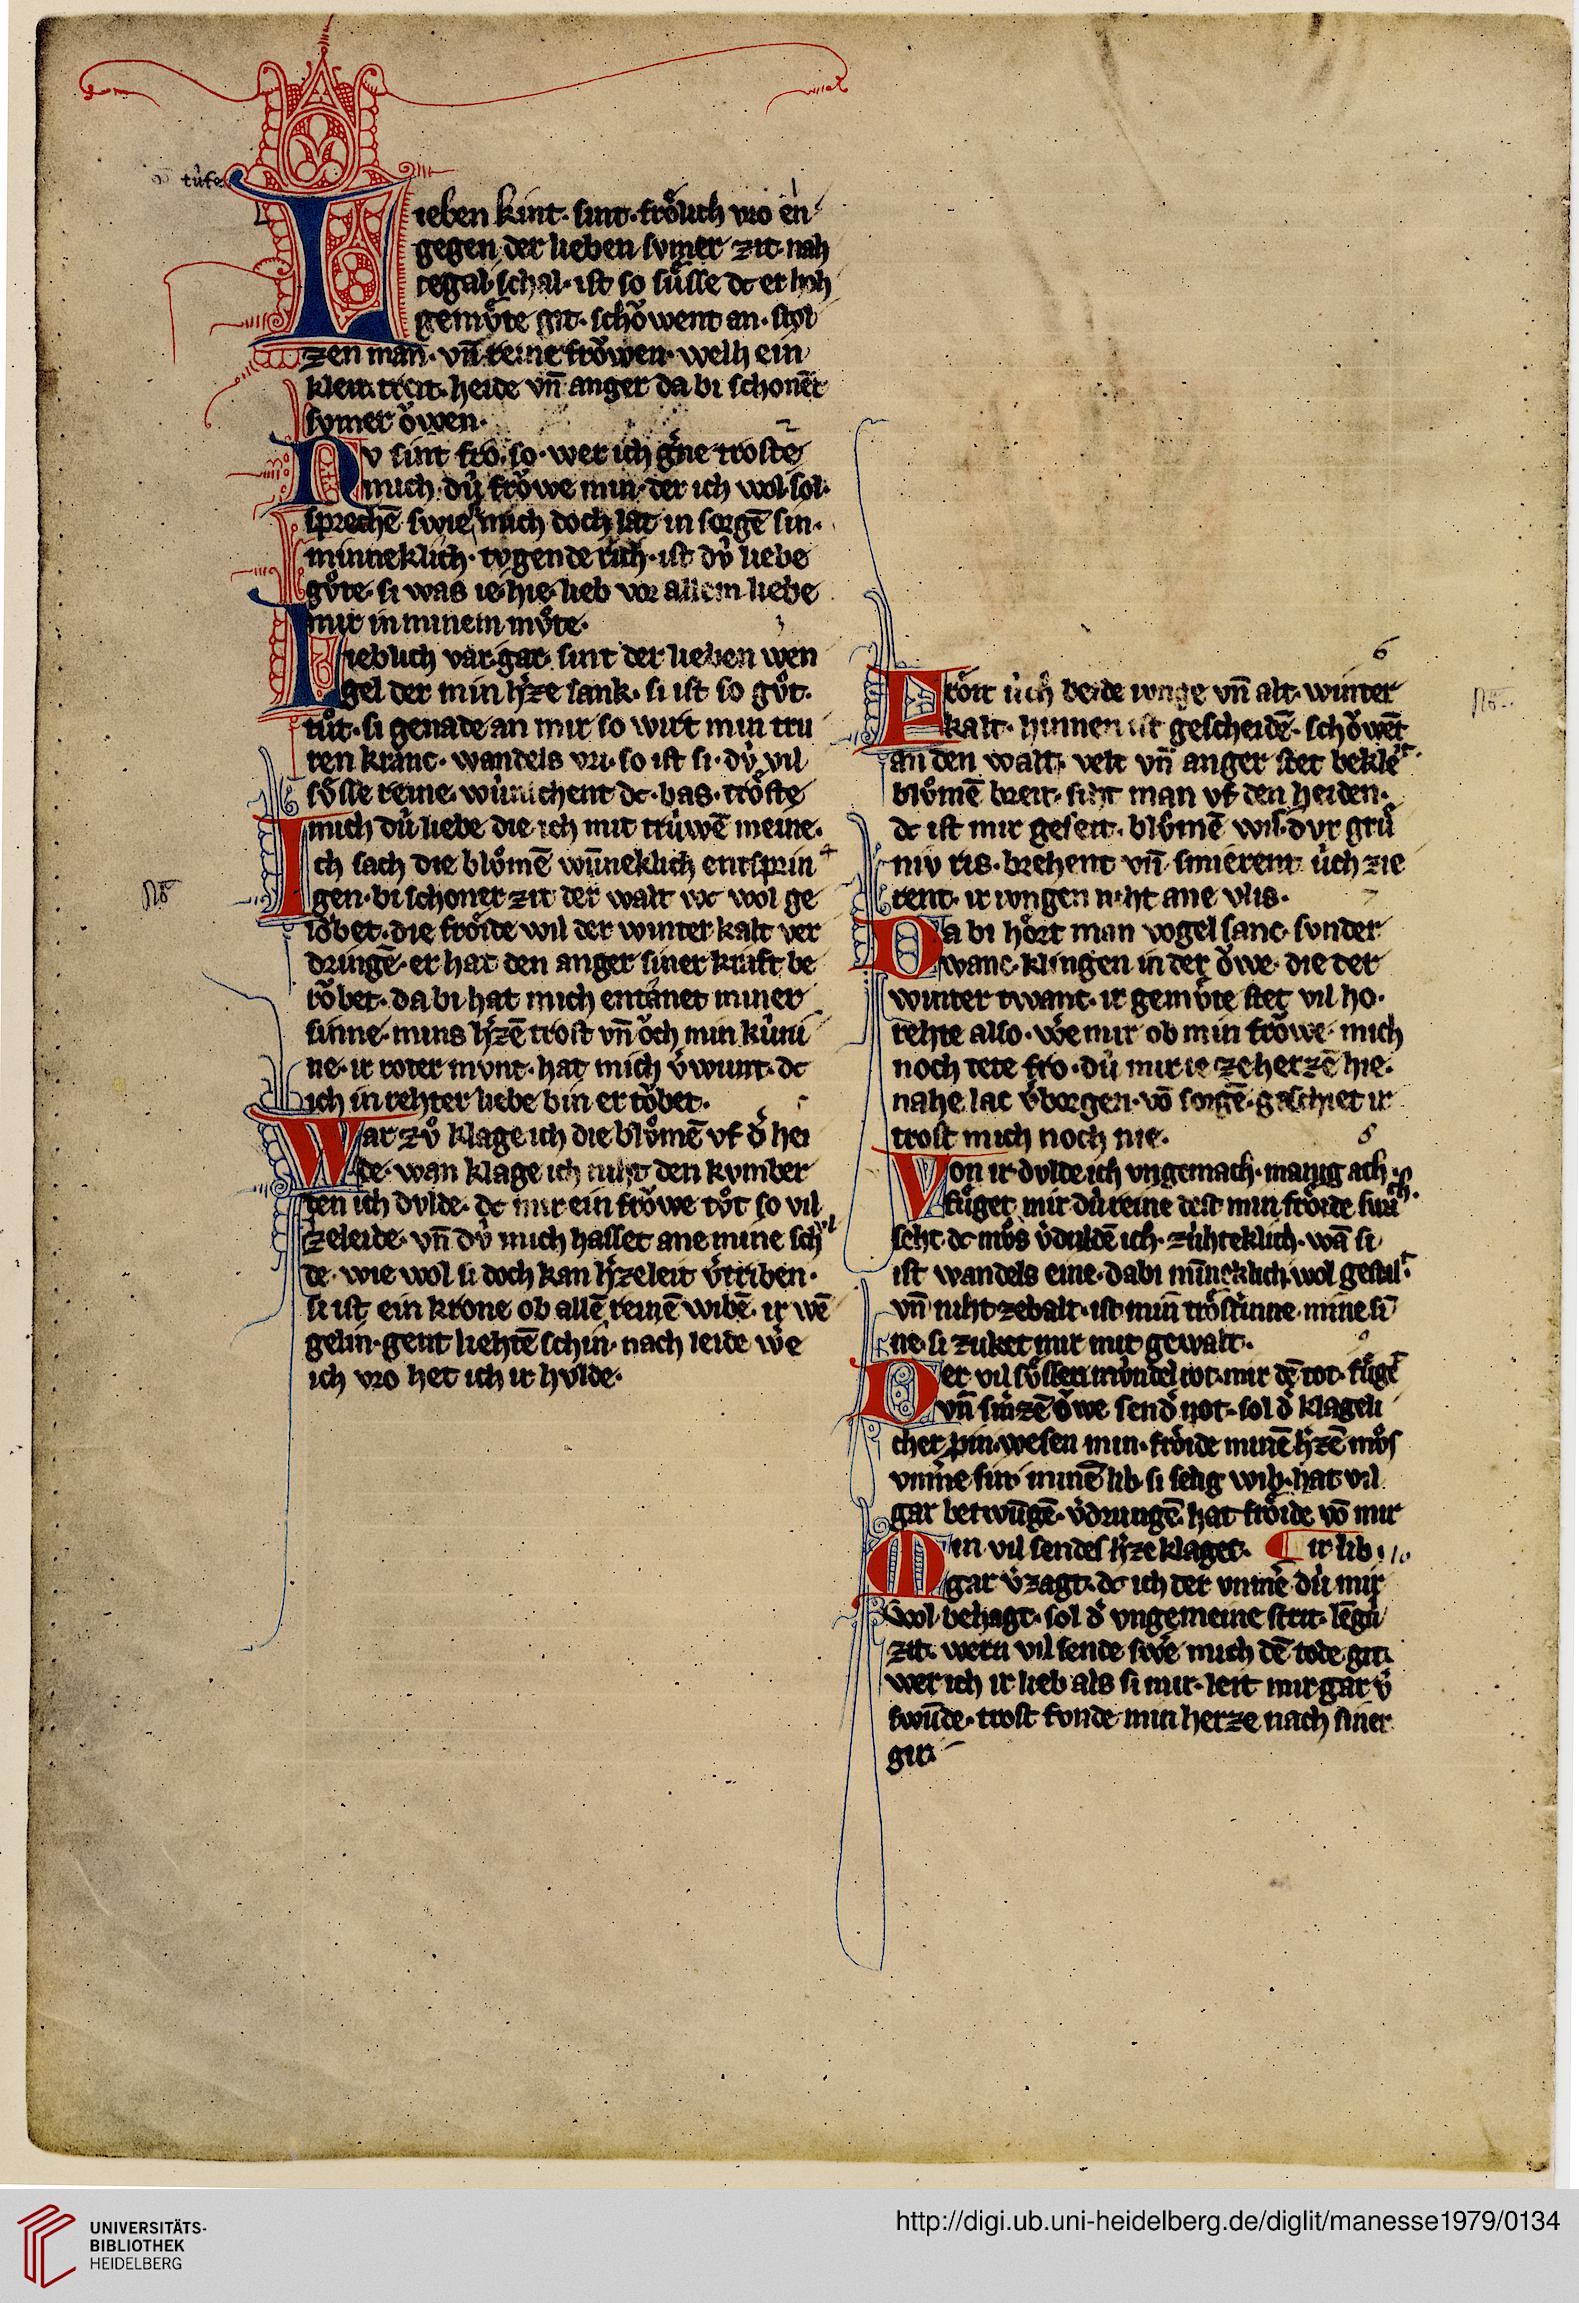 túfe
Lieben kint· sint·frölich vro en
gegen der lieben svmer zit· nah
tegal·schal· ist so süsse dc er hoh
gemv̊te git· schŏwent an· stol
zen man· vn̄ reine frŏwen· welh ein
kleit·treit· heide vn̄ anger da bi schonēr
svmer ŏwen·
2
Nv sint fro· so· wer ich gˀne troste
mich· dv́ frŏwe min· der ich wol·sol·
sprechē swie mich doch lat in sorgē sin·
minneklich· tvgende rich· ist dv́ liebe
gv̊te· si was ie·hie·lieb vor allem liebe
mir in minem mv̊te·
3
Lieblich var·gar· sint der lieben wen
gel der min hˀze sank· si ist so gv̊t·
tůt· si genade an mir so wirt min tru
ren kranc· wandels vri· so ist si· dv́ vil
sv̊sse reine· wúnschent dc· bas· trőste
mich dú liebe die ich mit trúwē meine·
4
Ich sach die blv̊mē wūneklich entsprin
gen· bi schoner zit der walt wc wol ge
lŏbet· die frőide wil der winter kalt ver
dringē· er hat den anger siner kraft be
rŏbet· da bi hat mich entānet miner
sinne· mins hˀzē trost vn̄ ŏch min kúni
ne· ir roter mvnt· hat mich vˀwunt· dc
ich in rehter liebe bin er tŏbet·
5
War zv̊ klage ich die blv̊mē vf dˀ hei
de· wan klage ich niht den kvmber
den ich dvlde· dc mir ein frŏwe tv̊t so vil
zeleide· vn̄ dv́ mich hasset ane mine sch
vl
de· wie wol si doch kan hˀzeleit vˀtriben·
si ist ein krone ob allē reinē wibē· ir wē
gelin· gent liehtē schin· nach leide wˀe
ich vro het ich ir hvlde·
No
6
Frőit úch beide ivnge vn̄ alt· winter
kalt· hinnen ist gescheidē· schŏwēt
an den walt· velt vn̄ anger stet bekleˀt·
blv̊mē breit· siht man vf den heiden·
dc ist mir geseit· blv̊mē wil·dvr grů
niv ris· brehent vn̄ smierent· úch zie
rent· ir ivngen niht ane vlis·
7
Da bi hőrt man vogel sanc· svnder
wanc·klingen in der ŏwe· die der
winter twanc· ir gemv̊te stet vil ho·
rehte also· wˀe mir ob min frŏwe· mich
noch tete fro· dú mir ie ze herzē hie·
nahe lac vˀborgen· vō sorgē· gˀschiet ir
trost mich noch nie·
8
Von ir dvlde ich vngemach· manig ach·
fůget mir dú reine dest min frőide swa
ch·
seht dc mv̊s vˀduldē ich· zúhteklich· wā si
ist wandels eine·dabi mīneklich·wol gestalˀt·
vn̄ niht zebalt· ist min trőstˀinne· mine si
ne· si zuket mir mit gewalt·
9
Der vil sv̊ssen mv́ndel rot· mir dē tot· fůgeˀt
vn̄ smˀzē ŏwe sendˀ not· sol dˀ klageli
cher pin·wesen min· frőide minē hˀzē mv̊s
vnmˀe sin· minē lib· si selig wib· hat vil
gar betwūgē· vˀdrungē hat frőide vō mir
Min vil sendes hˀze klaget· ir lib· 10
gar vˀzagt· dc ich der vnmˀe dú mir
wol behagt· sol dˀ vngemeine strit· lēgˀu
zit· wern vil sende swˀe mich dē tode git·
wer ich ir lieb als si mir· leit mir gar vˀ
swūde· trost fvnde min herze nach siner
gir·
No
UNIVERSITÄTS-
BIBLIOTHEK
HEIDELBERG
http://digi.ub.uni-heidelberg.de/diglit/manesse1979/0134